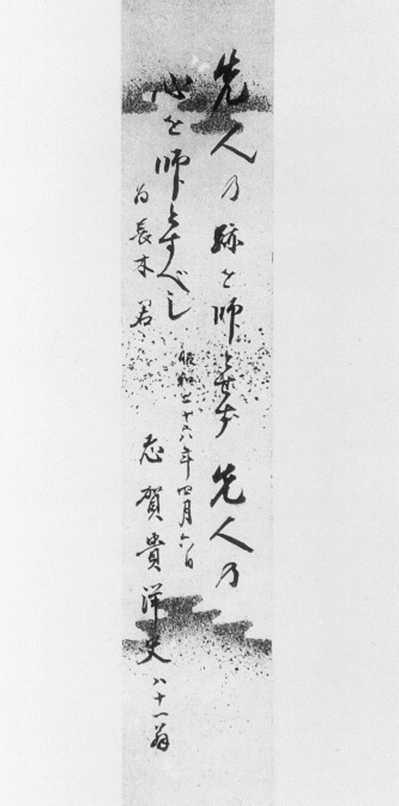 先人乃跡を師とせず 先人乃
心を師とすべし
昭和二十六年四月六日
為長木君
志賀貴洋史 八十一翁